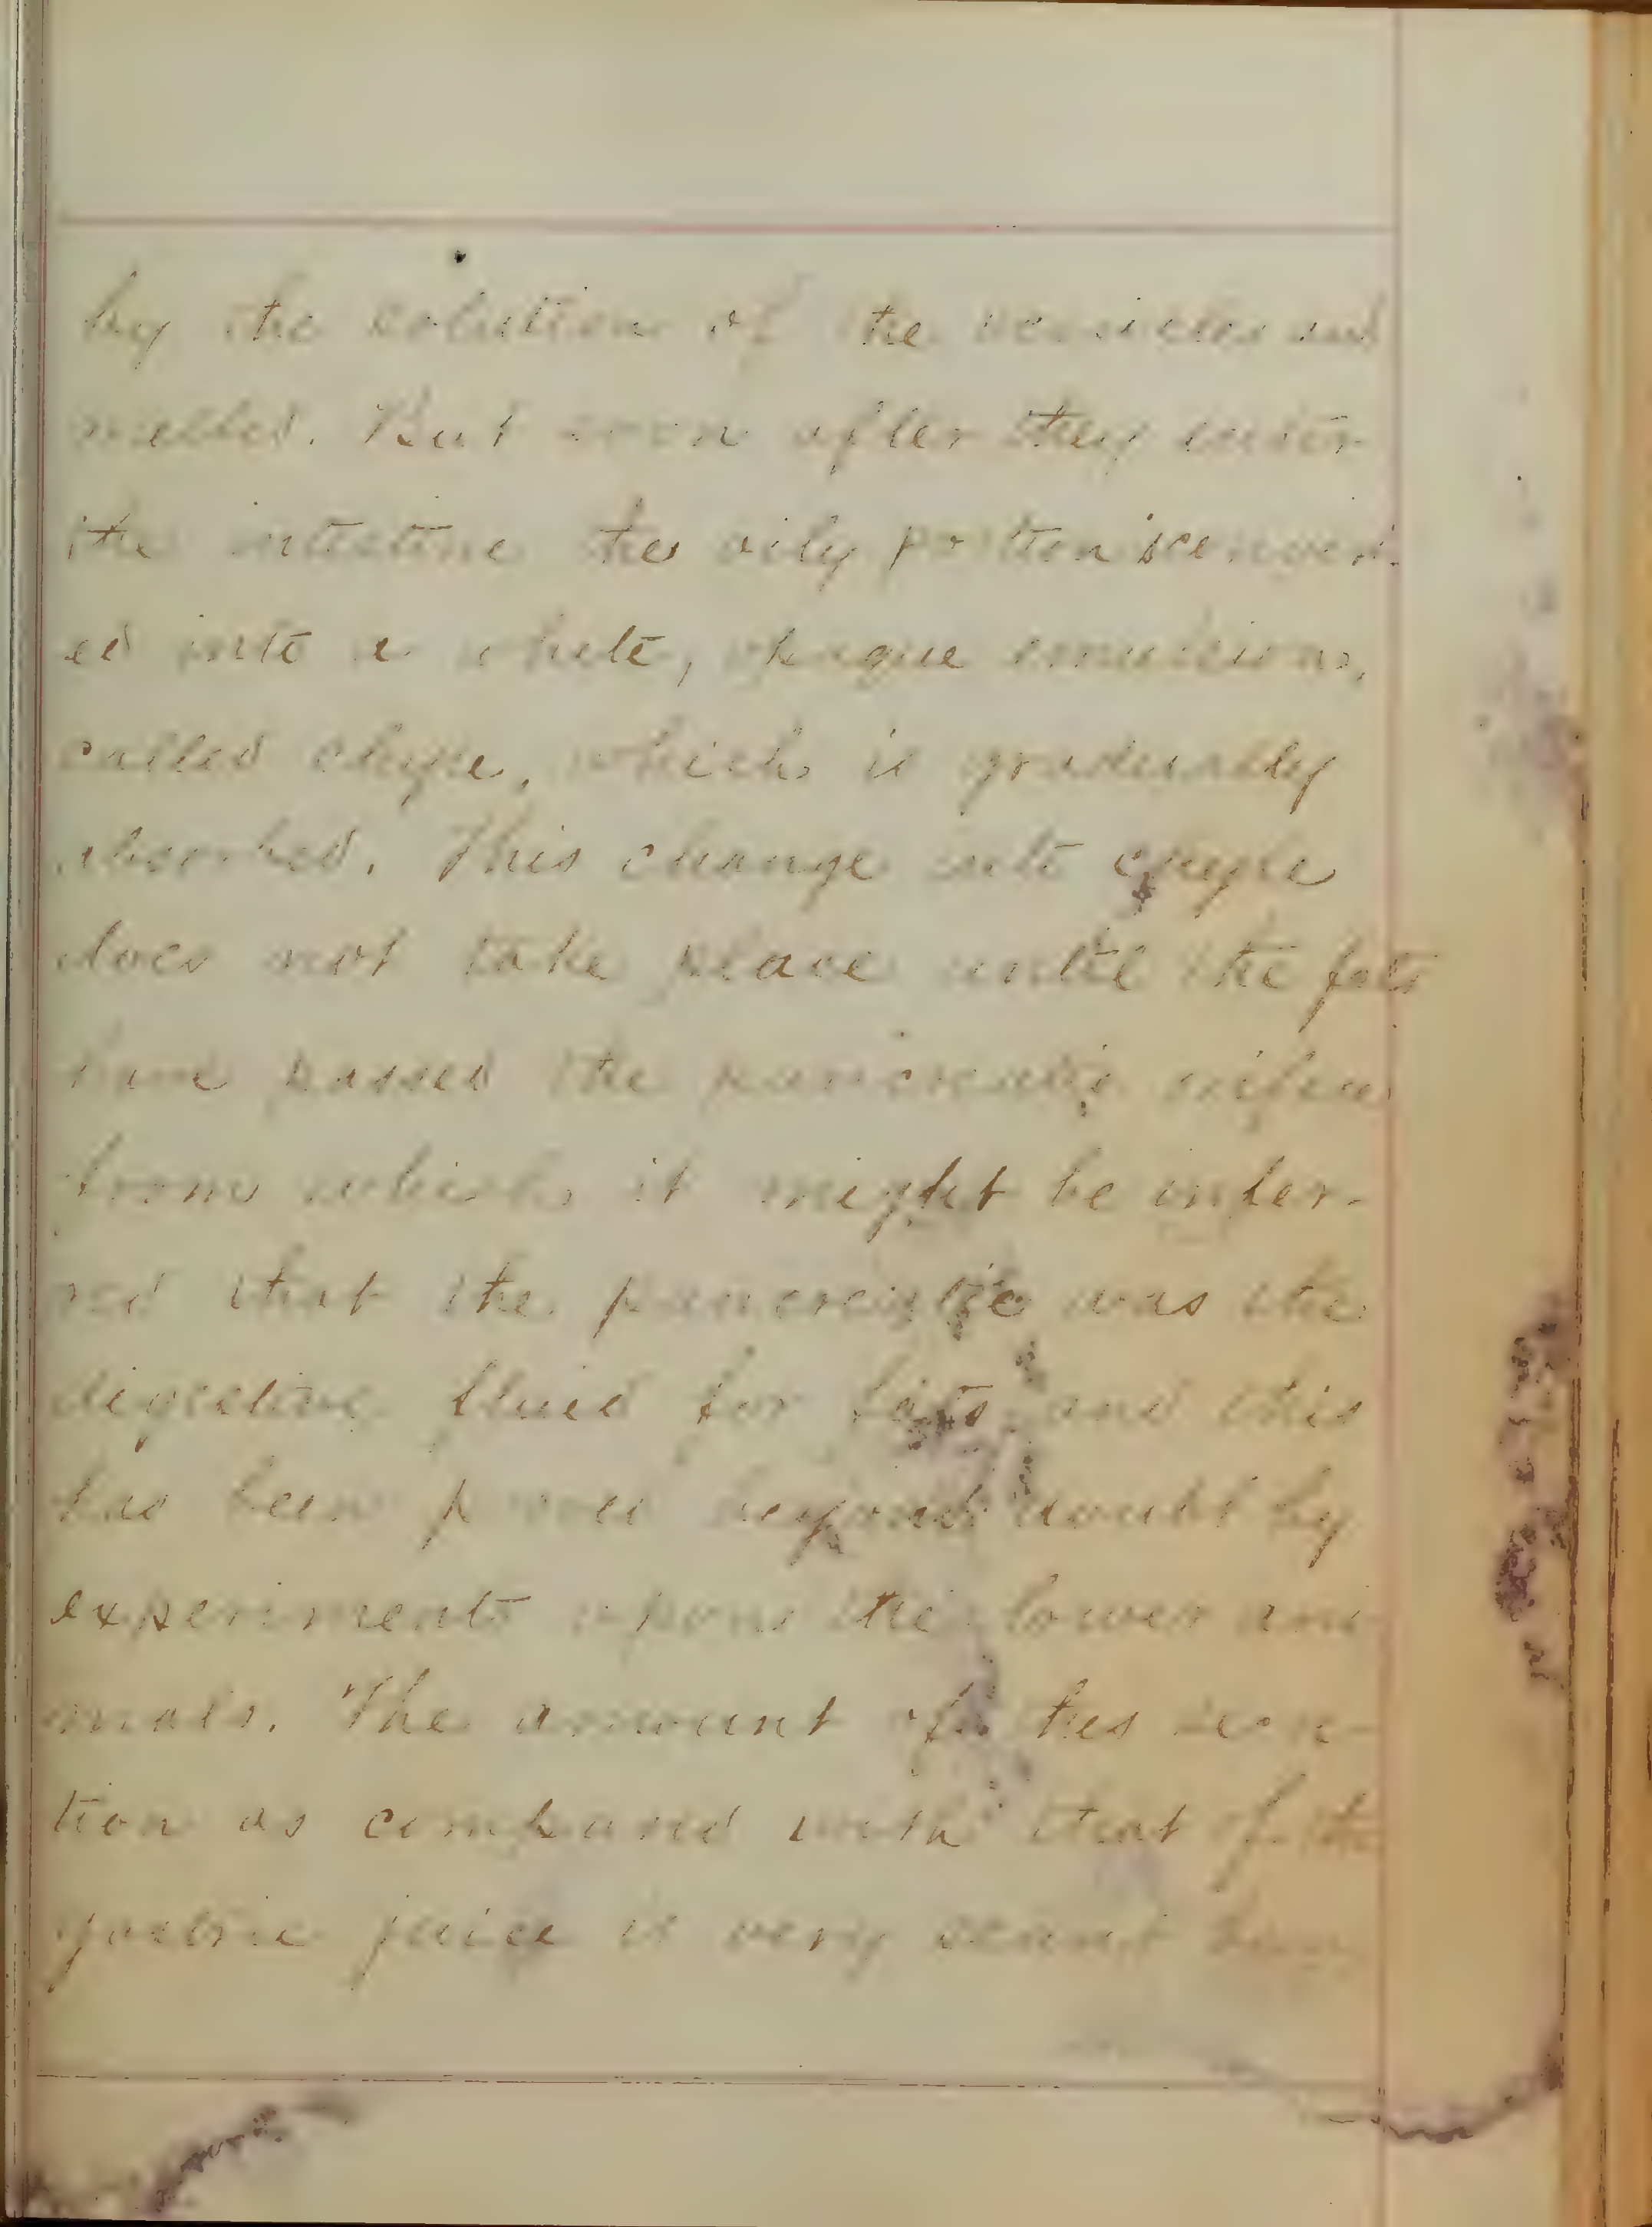 by the solution of the vesicles and
melted. But soon after they enter
the intestine the oily portion is convert-
ed into a white, opaque emulsion,
called chyle, which is gradually
absorbed. This change into chyle
does not take place until the fats
have passed the pancreatic orifice
from which it might be infer-
red that the pancreatic was the
digestive fluid for fats and this
has been proved beyond doubt by
experiments upon the lower ani
mals. The amount of this
tion as compared with that of the
gastric juice is very scant